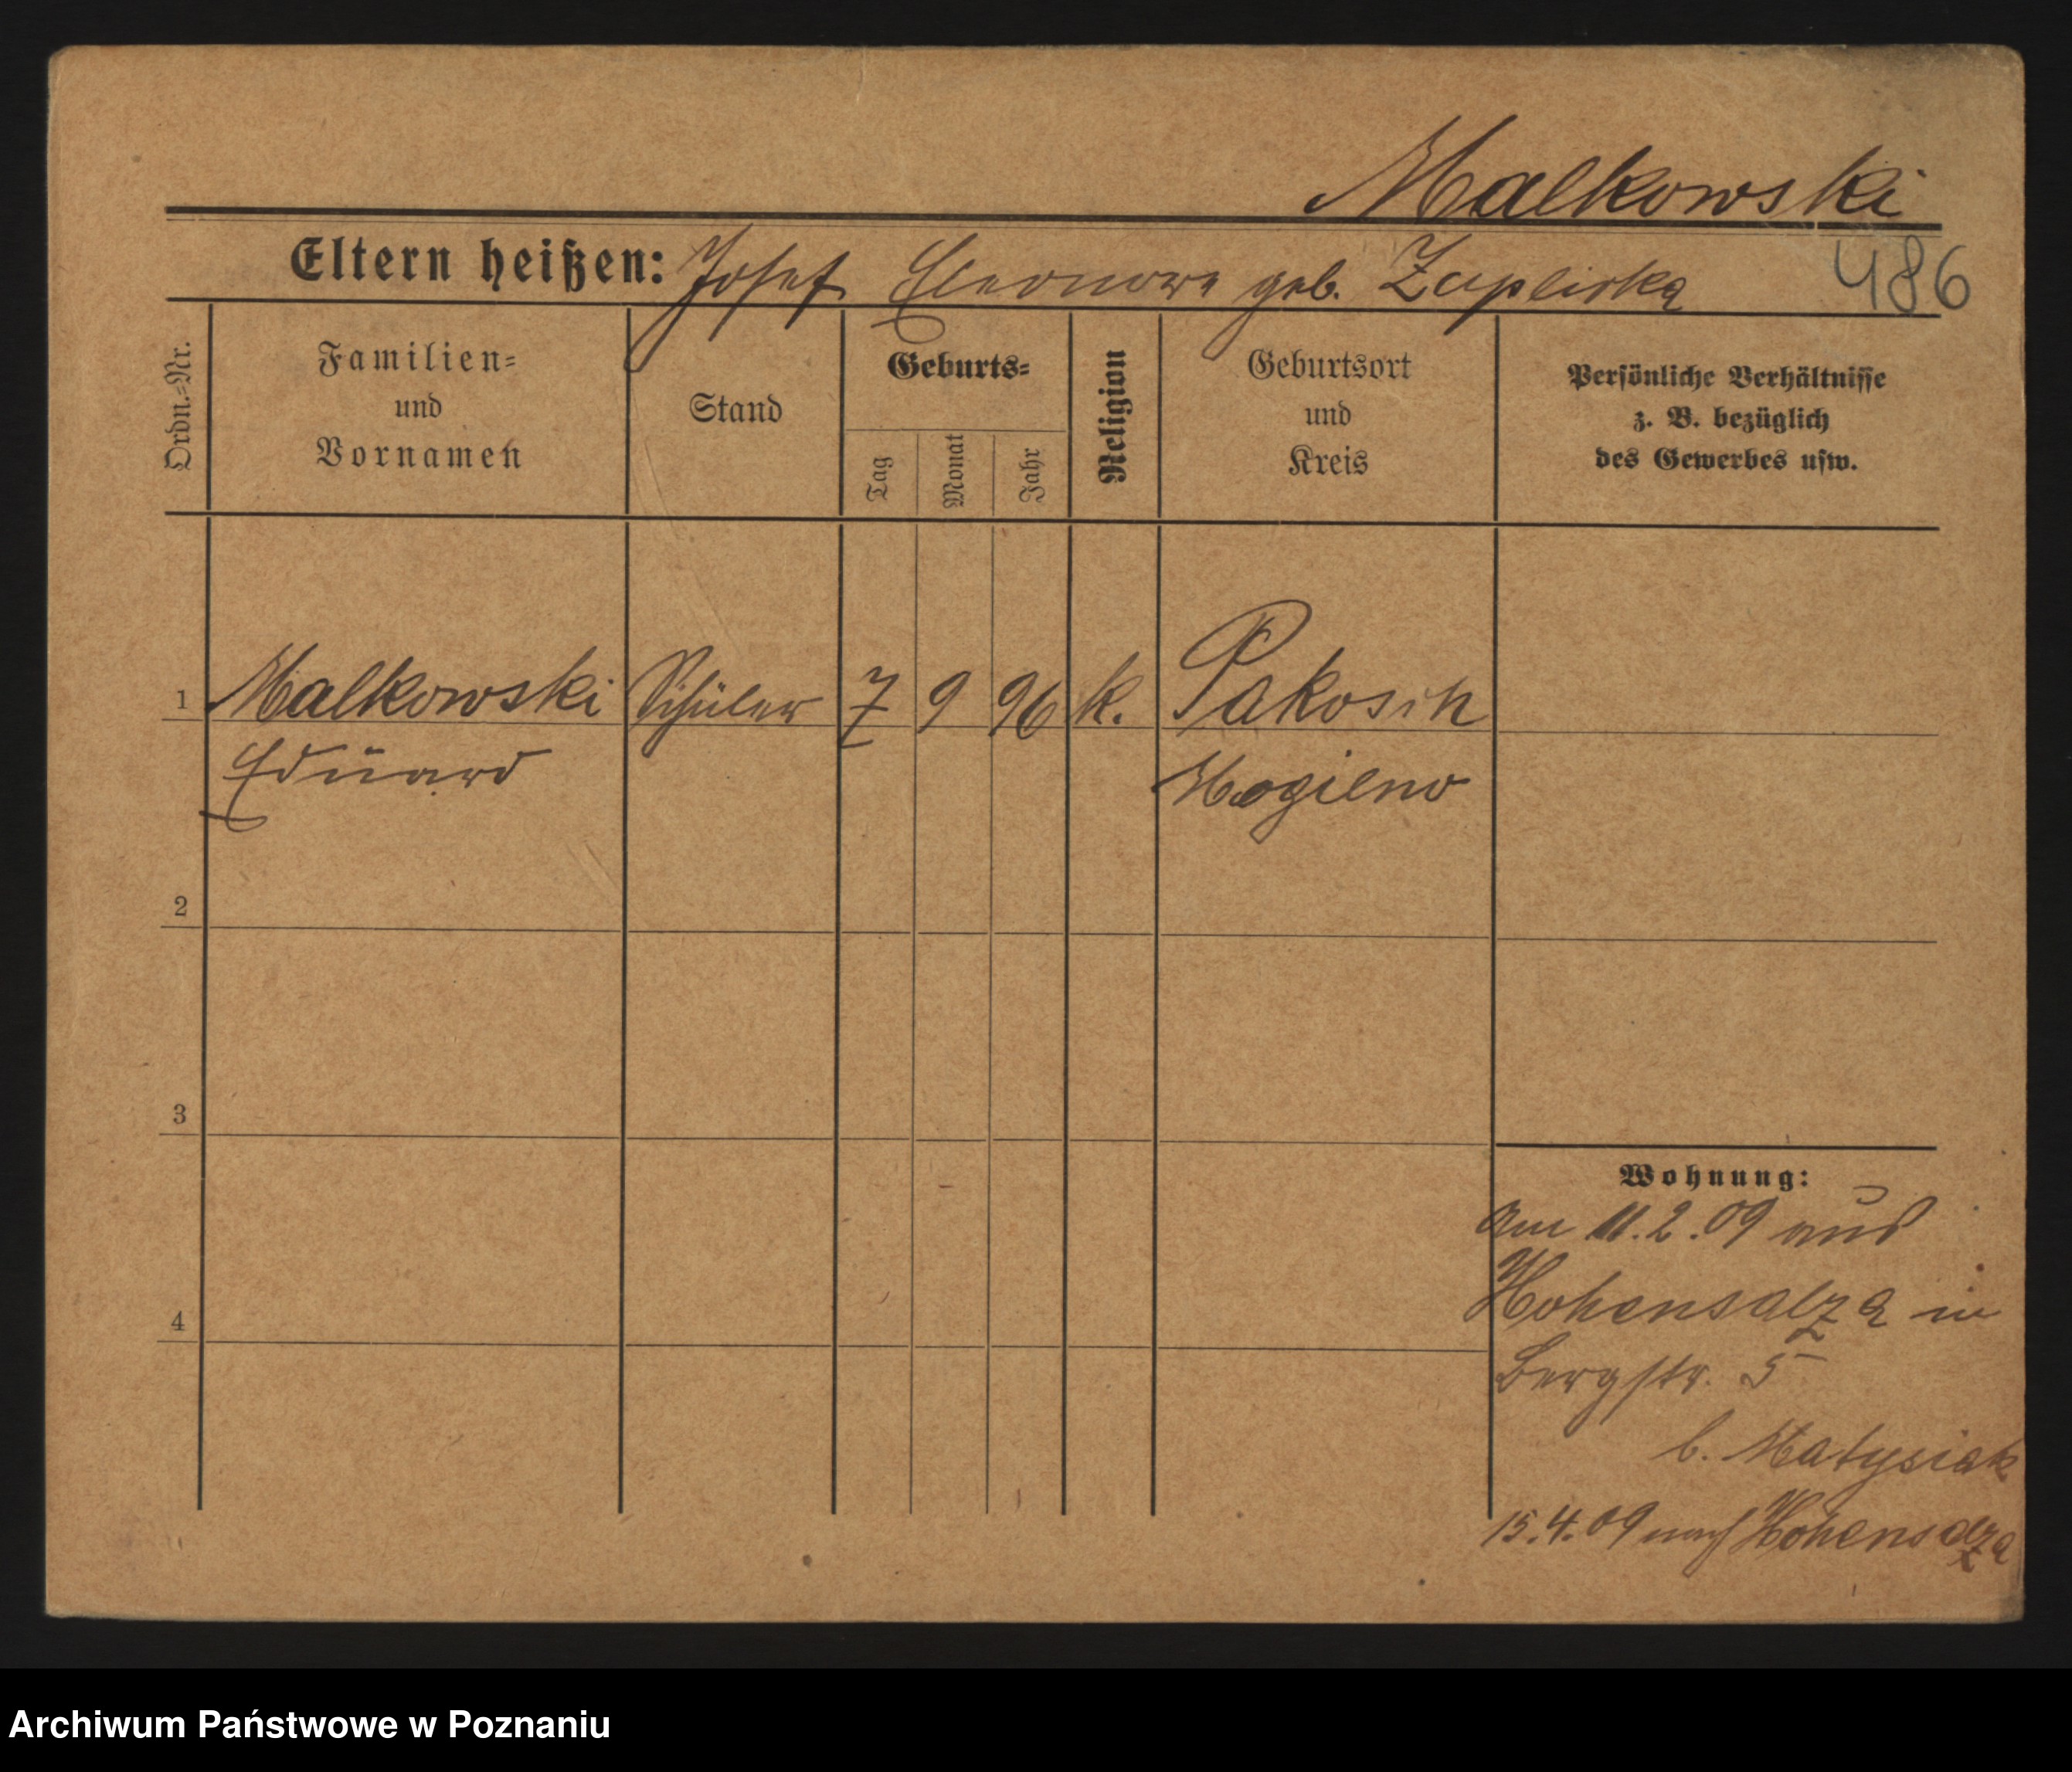 Malkowski
Eltern heißen: Josef Eleonore geb. Zuplicka
486
Ordn.-Nr.
Familien-
und
Vornamen
Stand
Geburts-
Tag
Monat
Jahr
Religion
Geburtsort
und
Kreis
Persönliche Verhältnisse
z. B. bezüglich
des Gewerbes usw.
1 Malkowski Schüler 7 9 96 k. Pakosch
Eduard Mogilno
2
3
4
Wohnung:
am 11.2.09 aus
Hohensalza in
Bergstr. 5
b. Matysiak
15.4.09 nach Hohensalza
Archiwum Państwowe w Poznaniu